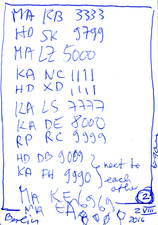 MA KB 3333
HD SK 9799
MA LZ 5000
KA NC 1111
HD XD 1111
KA LS 7777
KA DE 8000
RP RC 9999
HD DB 9089
KA FH 9990
next to
each
other
MA KE 6969
MA EA
Berlin
2
2 VIII
2016